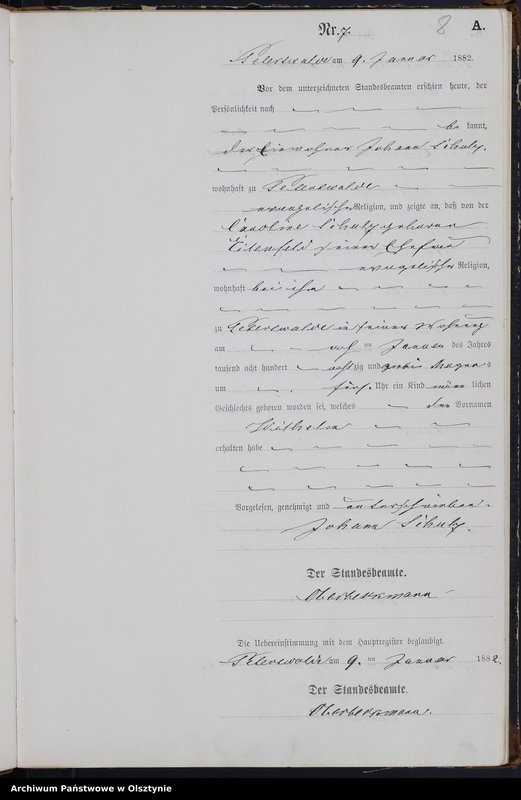 Nr. 7.
8
A.
Peterswalde am 9. Januar 1882.
Vor dem unterzeichneten Standesbeamten erschien heute, der
Persönlichkeit nach
be kannt,
der Einwohner Johann Schulz
wohnhaft zu Peterswalde
evangelischer Religion, und zeigte an, daß von der
Caroline Schulz geborenen
seiner Ehefrau
evangelischer Religion,
wohnhaft bei ihm
zu Peterswalde in seiner Wohnung
am acht ten Januar des Jahres
tausend acht hundert achtzig und zwei Morgens
um fünf Uhr ein Kind männlichen
Geschlechts geboren worden sei, welches den Vornamen
Wilhelm
erhalten habe
Vorgelesen, genehmigt und unterschrieben.
Johann Schulz.
Der Standesbeamte.
Die Uebereinstimmung mit dem Hauptregister beglaubigt.
Peterswalde am 9. ten Januar 1882.
Der Standesbeamte.
Archiwum Państwowe w Olsztynie